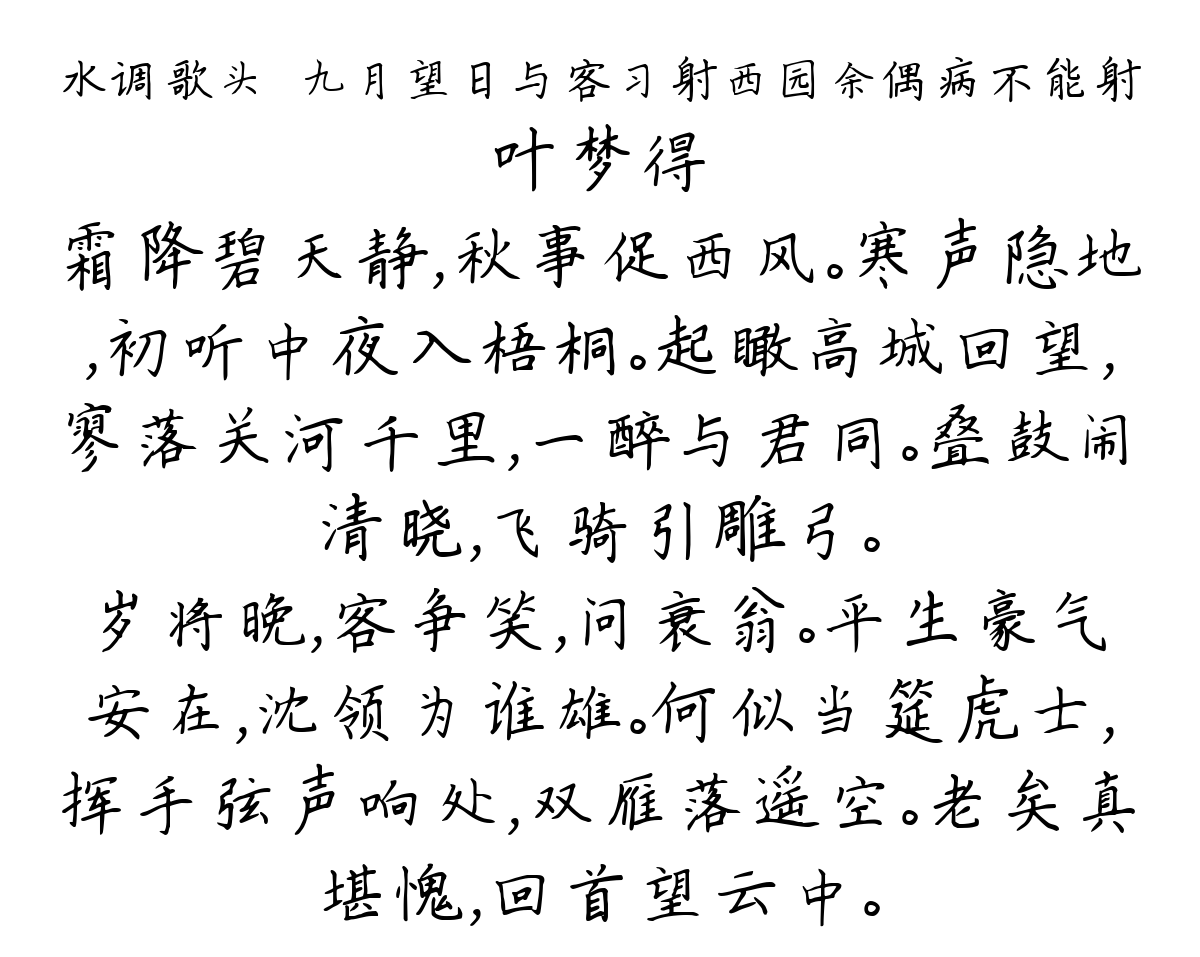 水调歌头 九月望日与客习射西园余偶病不能射
叶梦得
霜降碧天静,秋事促西风。寒声隐地
,初听中夜入梧桐。起瞰高城回望,
寥落关河千里,一醉与君同。叠鼓闹
清晓,飞骑引雕弓。
岁将晚,客争笑,问衰翁。平生豪气
安在,沈领为谁雄。何似当筵虎士,
挥手弦声响处,双雁落遥空。老矣真
堪愧,回首望云中。